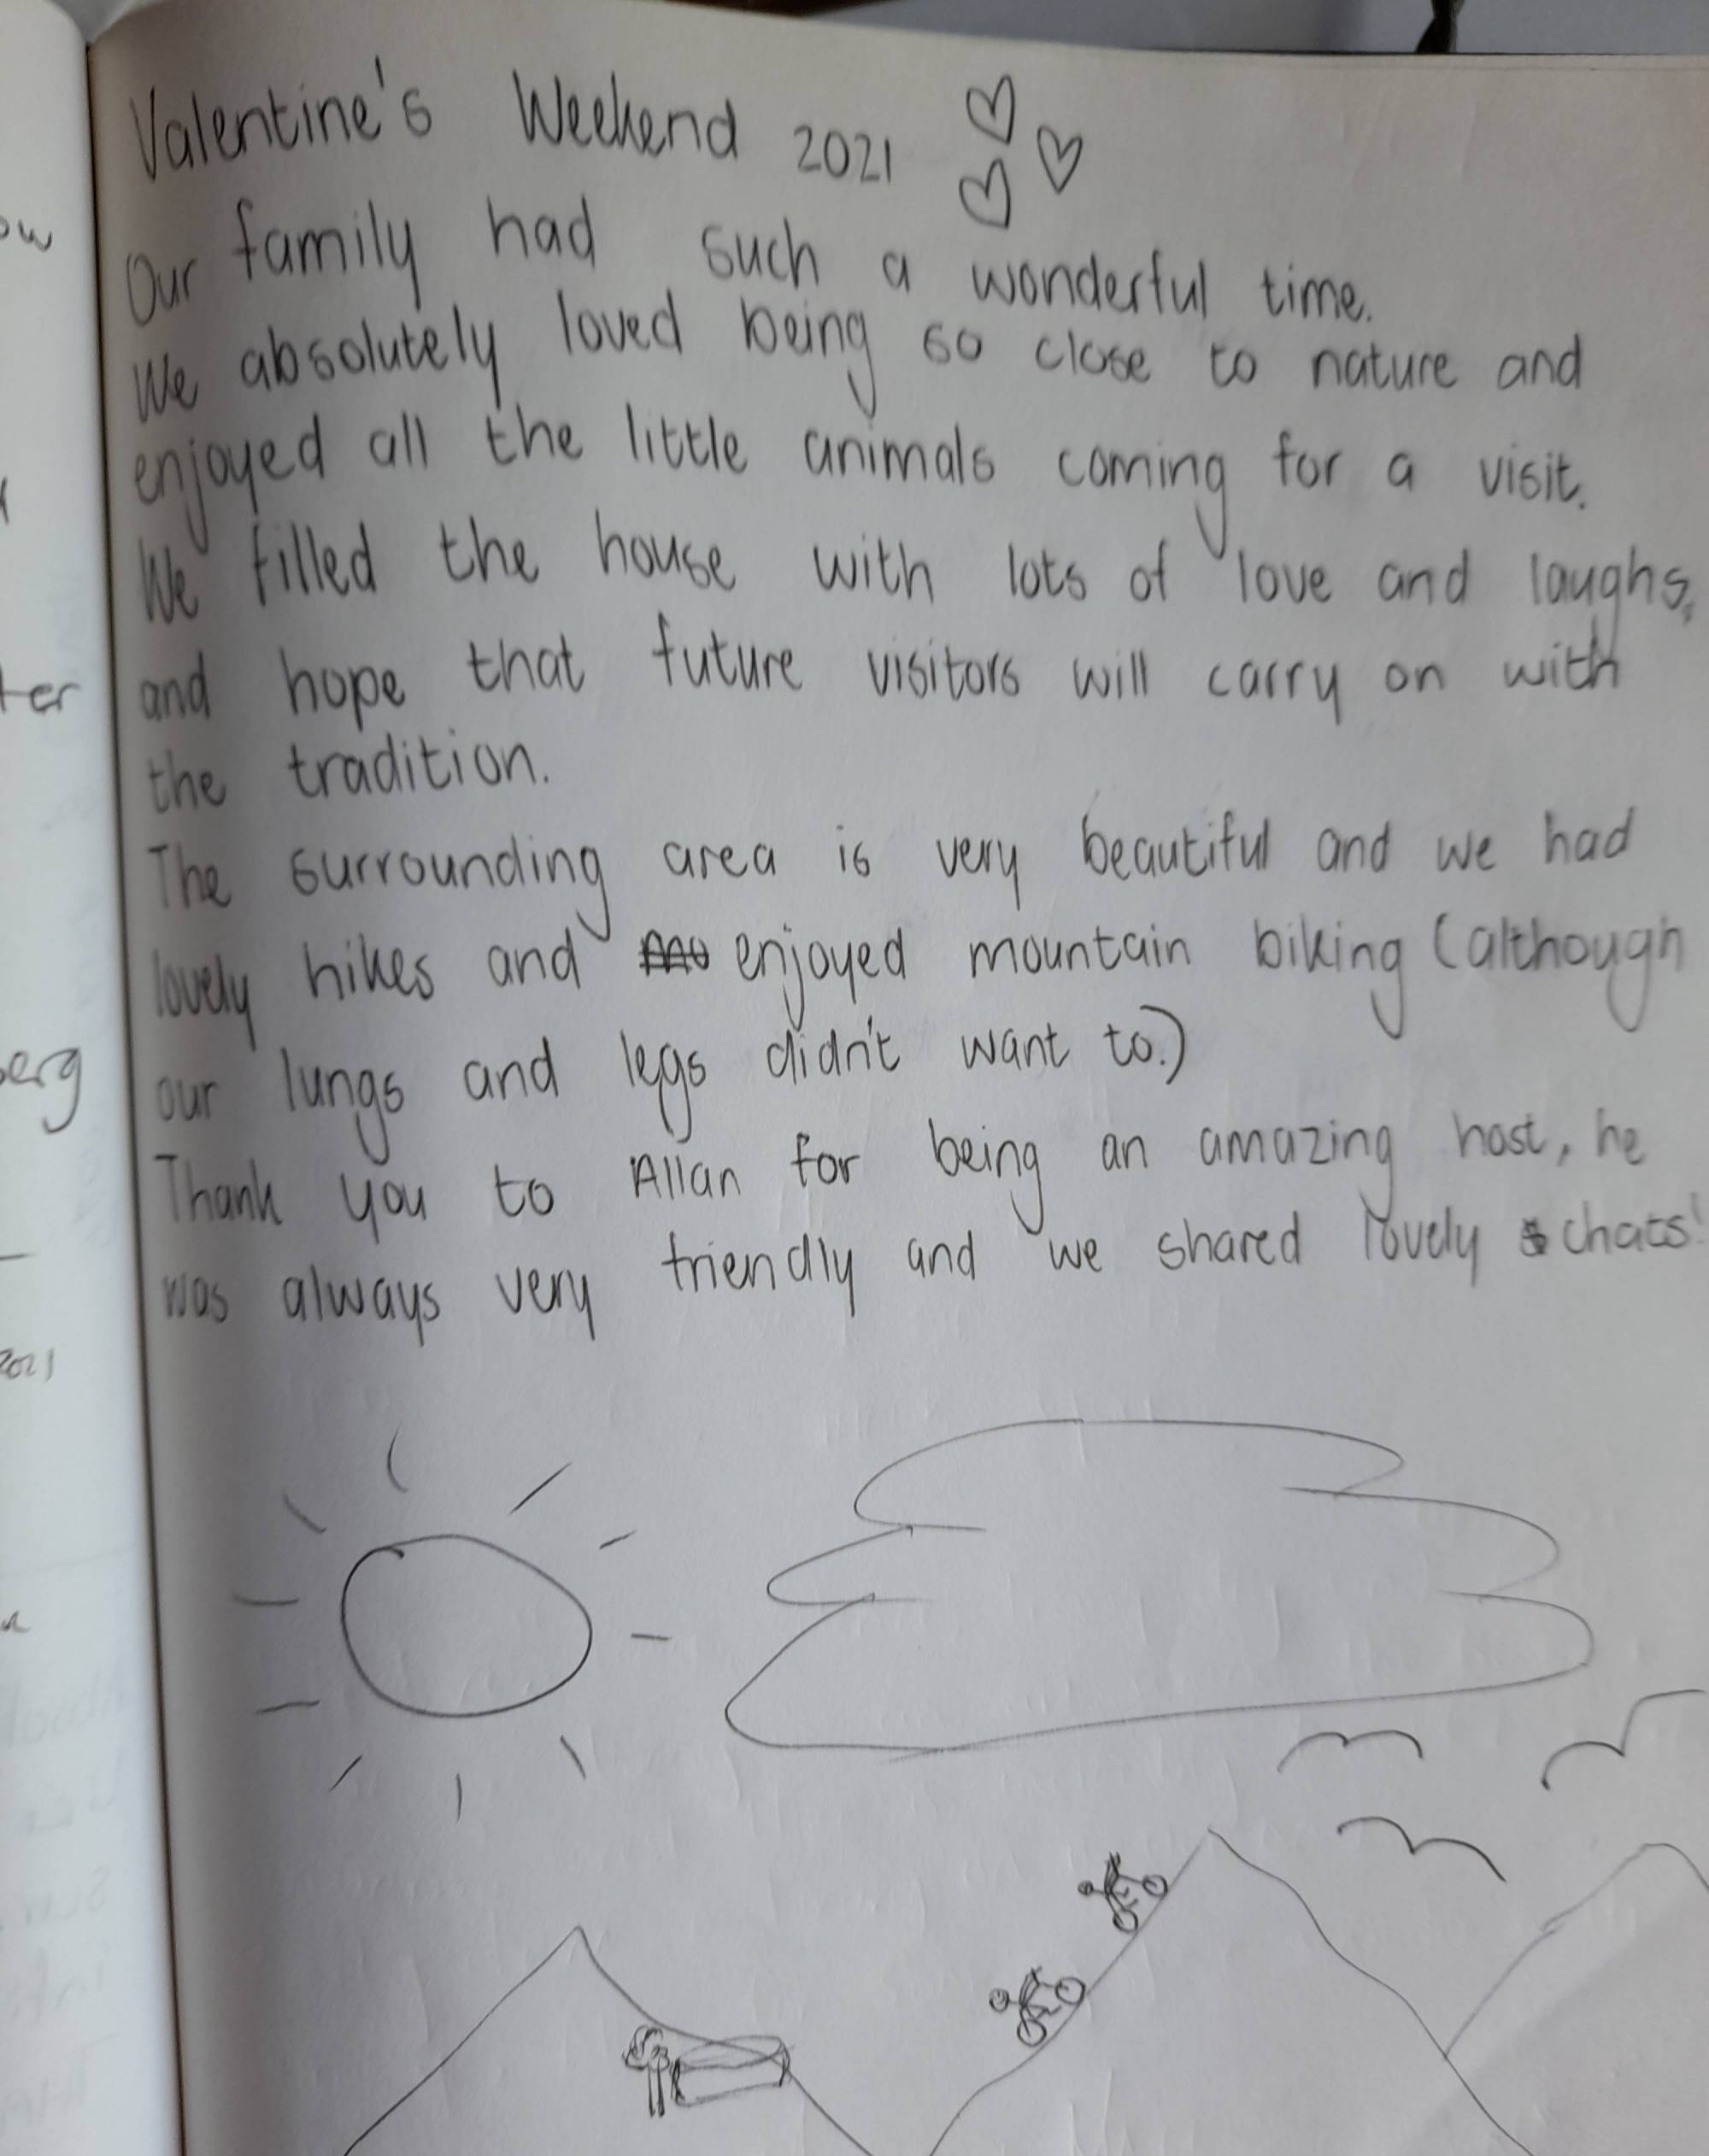 Valentine's Weekend 2021
Our family had such a wonderful time.
We absolutely loved being so close to nature and
enjoyed all the little animals coming for a visit.
We filled the house with lots of love and laughs,
and hope that future visitors will carry on with
the tradition.
The surrounding area is very beautiful and we had
lovely hikes and enjoyed mountain biking (although
our lungs and legs didn't want to.)
Thank you to Allan for being an amazing host, he
was always very friendly and we shared lovely chats!
ow
ter
erg
2021